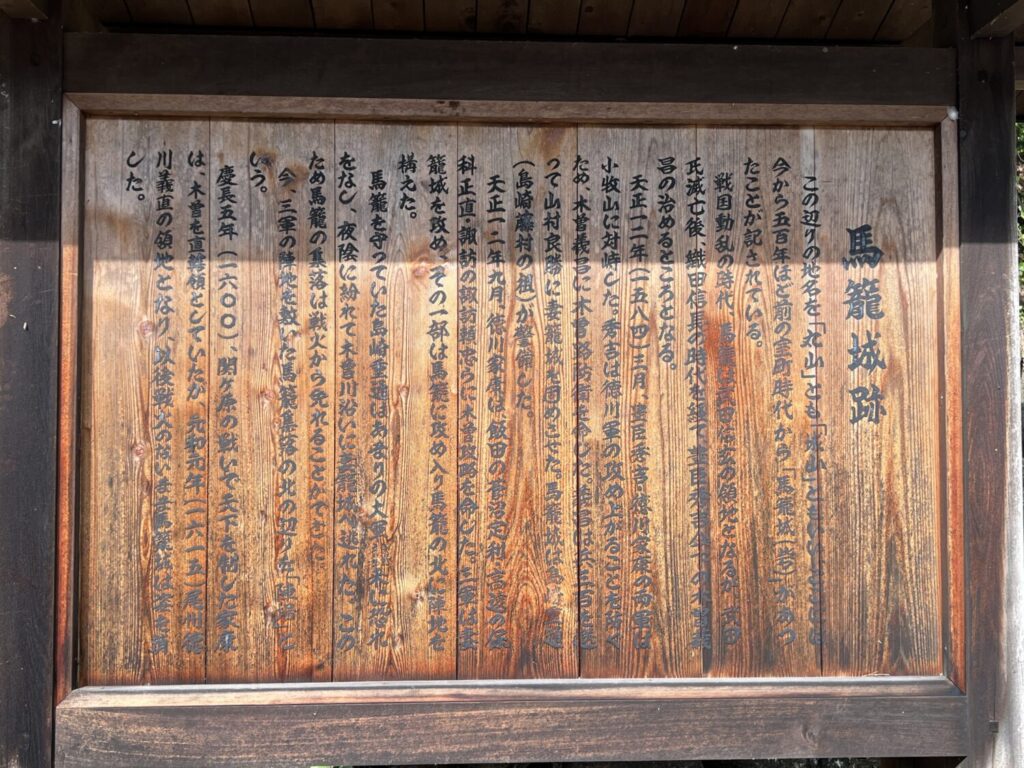 馬籠城跡
この辺りの地名を「丸山」とも「城山」ともいい、ここには
今から五百年ほど前の室町時代から「馬籠城(砦)」があっ
たことが記されている。
戦国動乱の時代、馬籠は武田信玄の領地となるが、武田
氏滅亡後、織田信長の時代を経て、豊臣秀吉傘下の木曽義
昌の治めるところとなる。
天正一二年(一五八四)三月、豊臣秀吉・徳川家康の両軍は
小牧山に対峙した。秀吉は徳川軍の攻め上がることを防ぐ
ため、木曽義昌に木曽路防衛を命じた。義昌は兵三百を送
って山村良勝に妻籠城を固めさせた。馬籠城は島崎重通
(島崎藤村の祖)が警備した。
天正一二年九月、徳川家康は飯田の菅沼定利・高遠の保
科正直・諏訪の諏訪頼忠らに木曽攻略を命じた。三軍は妻
籠城を攻め、その一部は馬籠に攻め入り馬籠の北に陣地を
構えた。
馬籠を守っていた島崎重通はあまりの大軍襲来に恐れ
をなし、夜陰に紛れて木曽川沿いに妻籠城へ逃れた。この
ため馬籠の集落は戦火から免れることができた。
今、三軍の陣地を敷いた馬籠集落の北の辺りを「陣場」と
いう。
慶長五年(一六〇〇)関ヶ原の戦いで天下を制した家康
は、木曽を直轄領としていたが、元和元年(一六一五)尾州徳
川義直の領地となり、以後戦火のないまま馬籠城は姿を消
した。